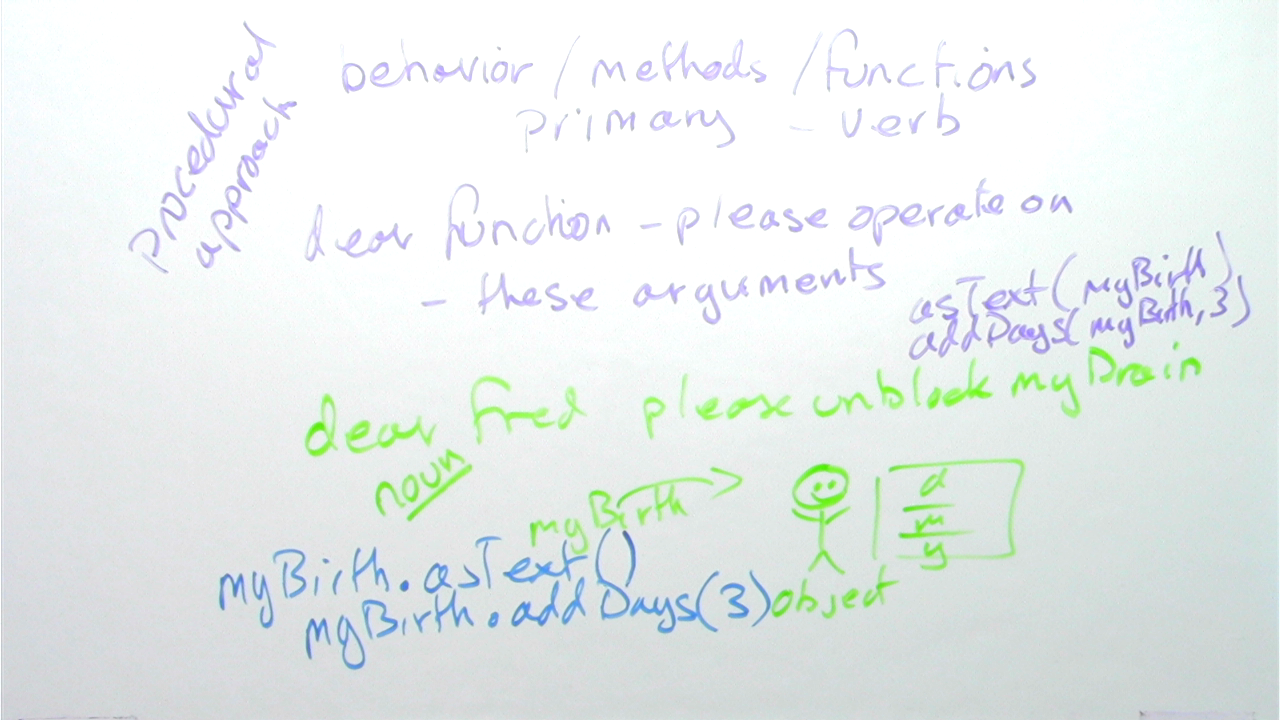 procedural
approach
behavior / methods / functions
primary - verb
dear function - please operate on
- these arguments
asText(myBirth)
addDays(myBirth, 3)
dear Fred please unblock myDrain
noun
myBirth
d
m
y
object
myBirth.asText()
myBirth.addDays(3)